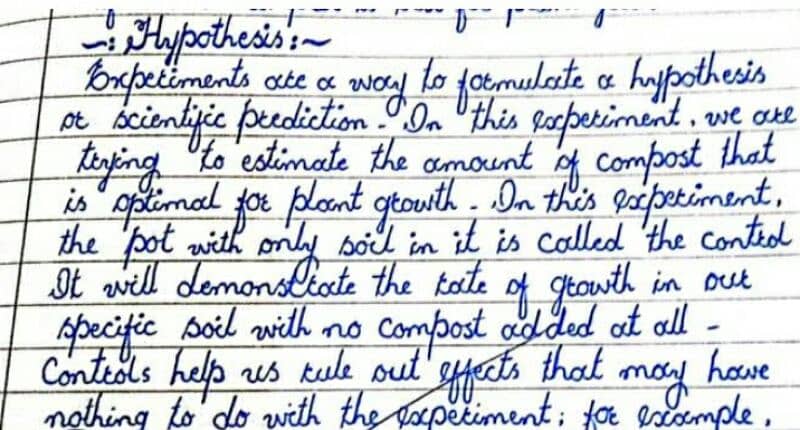 ~: Hypothesis :~
Experiments are a way to formulate a hypothesis
or scientific prediction - In this experiment, we are
trying to estimate the amount of compost that
is optimal for plant growth - In this experiment,
the pot with only soil in it is called the control
It will demonstrate the rate of growth in our
specific soil with no compost added at all -
Controls help us rule out effects that may have
nothing to do with the experiment; for example,